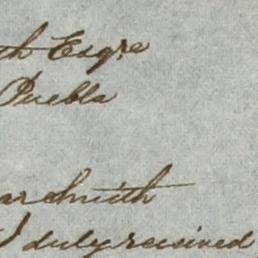 th Esqre
Puebla
ar Smith
I duly received